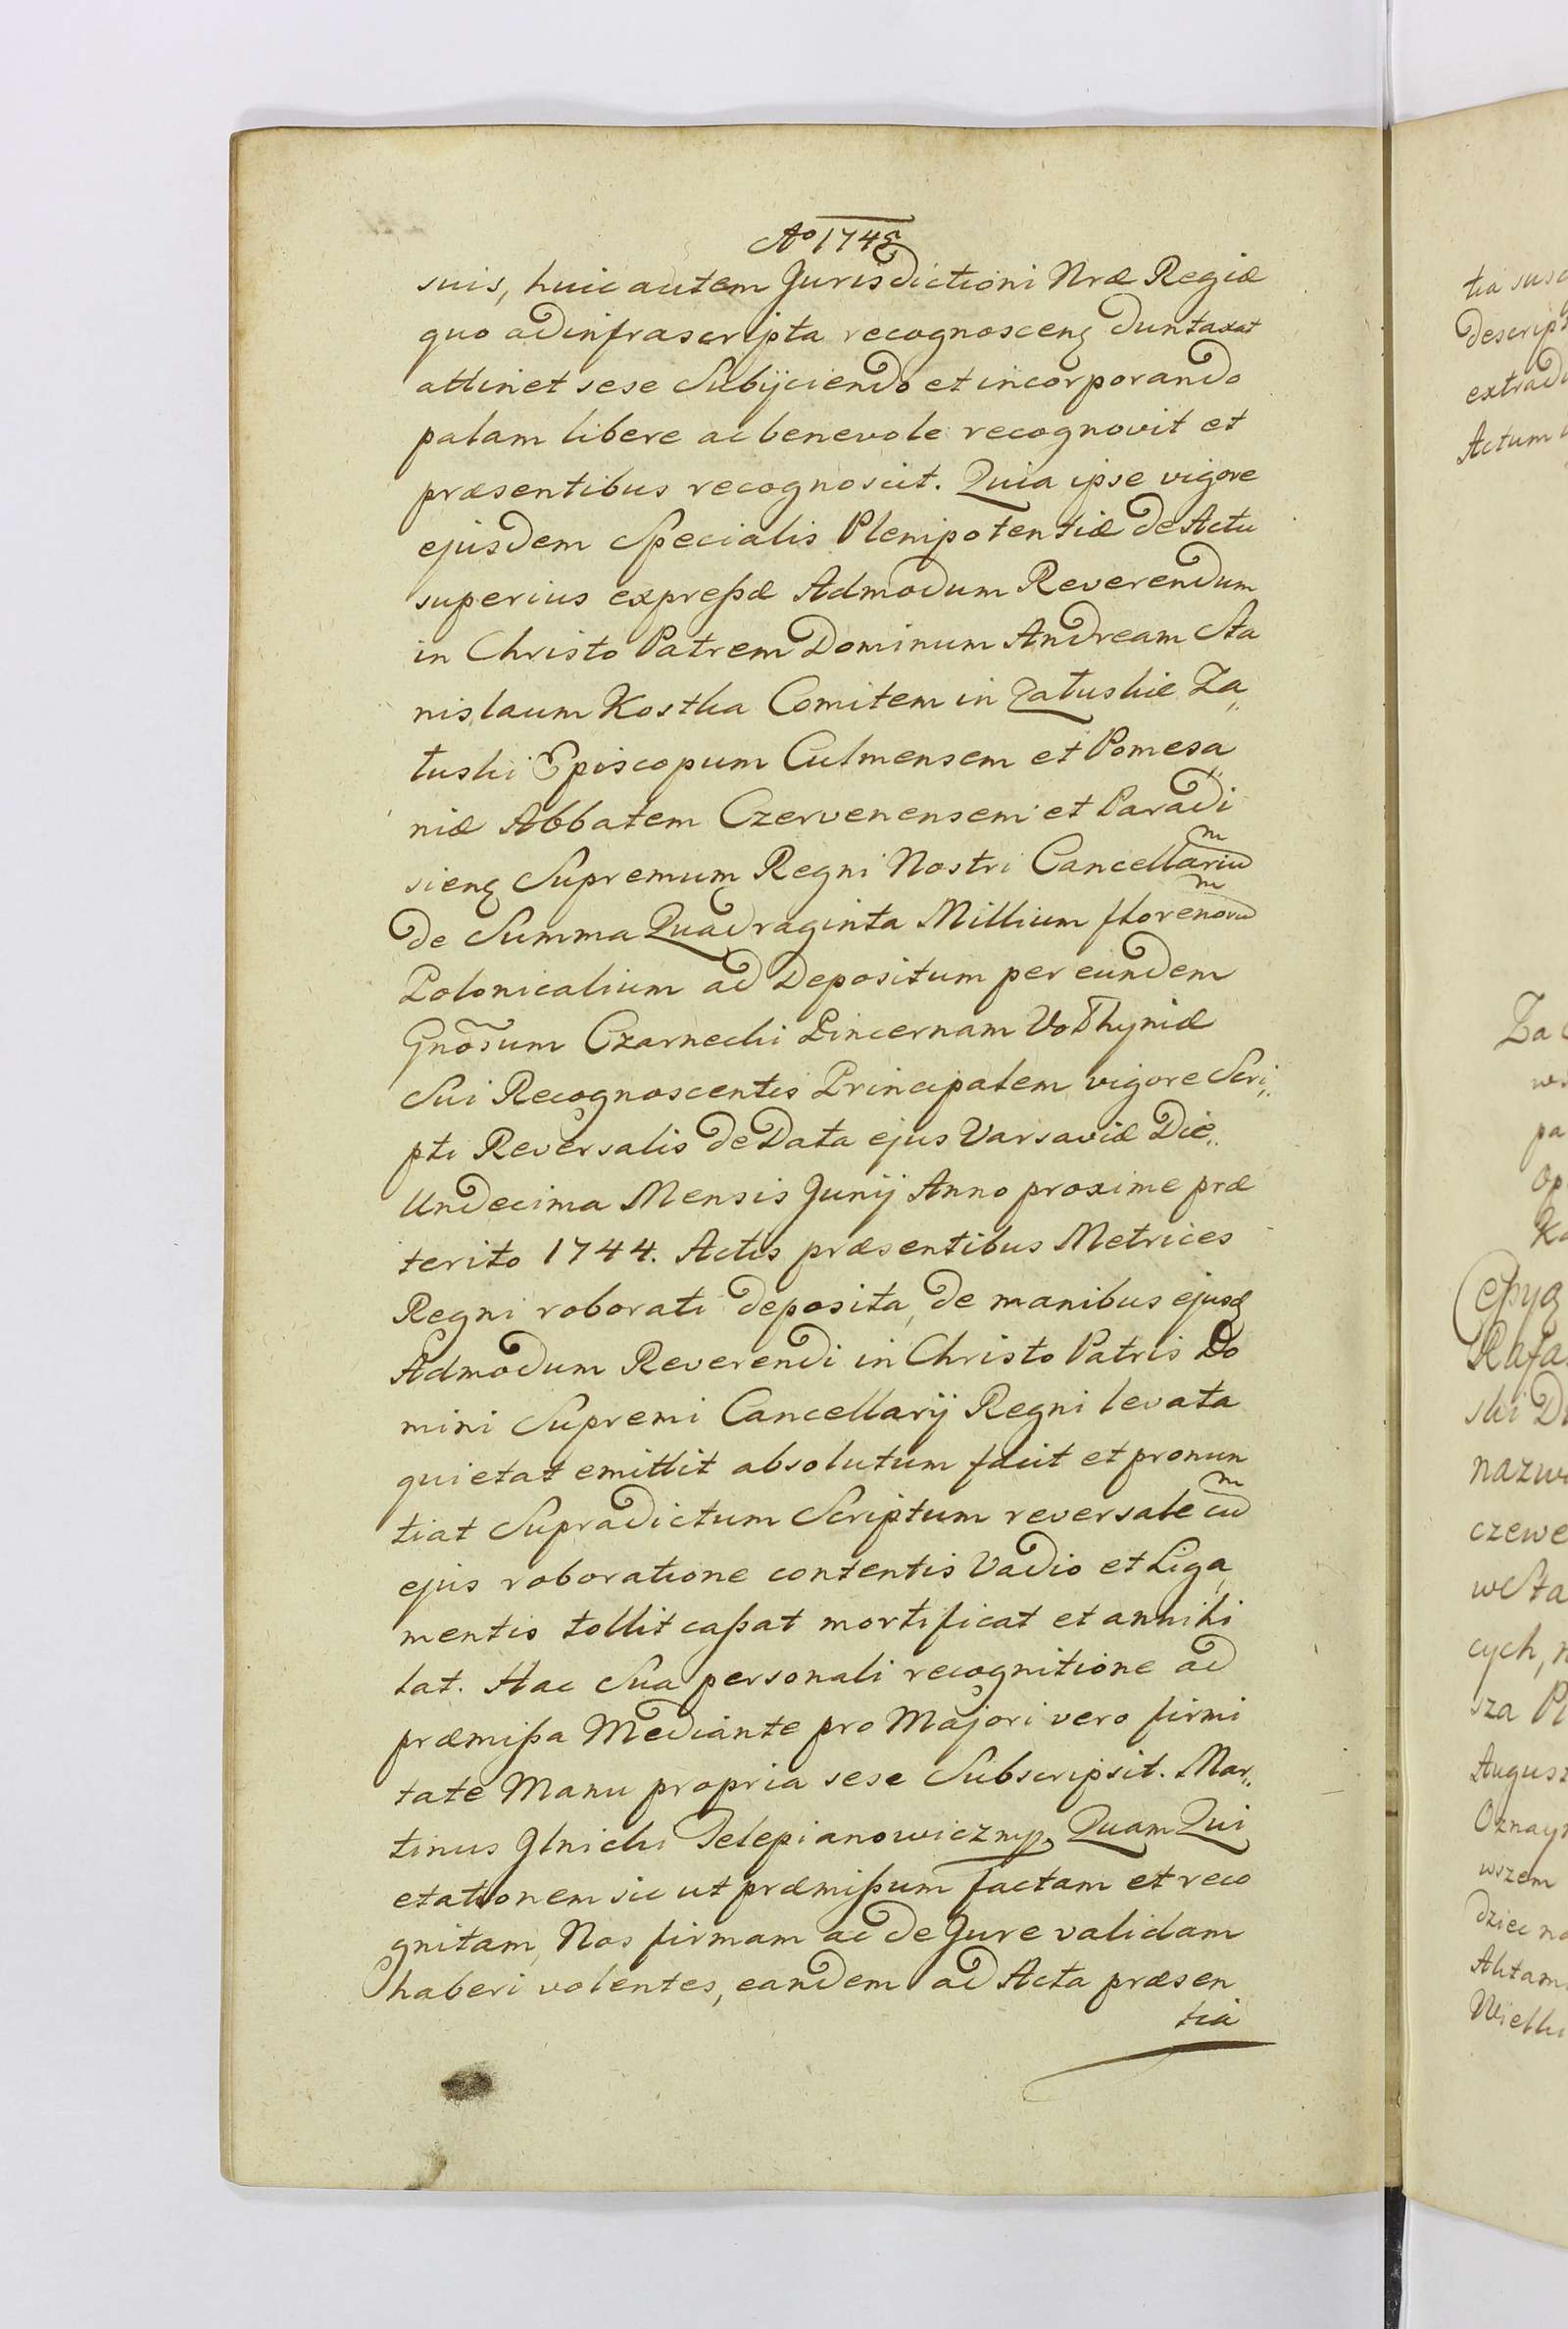 Aº 1745
suis, huic autem Jurisdictioni Nræ Regiæ
quo ad infrascripta recognoscenꝫ duntaxat
attinet sese Subijciendo et incorporando
palam libere ac benevole recognovit et
præsentibus recognoscit. Quia ipse vigore
ejusdem Specialis Plenipotentiæ de Actu
superius expreßæ Admodum Reverendum
in Christo Patrem Dominum Andream Sta
nislaum Kostka Comitem in Załuskie Za„
łuski Episcopum Culmensem et Pomesa„
niæ Abbatem Czervenensem et Paradi
sienꝫ Supremum Regni Nostri Cancellariũ
de Summa Quadraginta Millium florenorũ
Polonicalium ad Depositum per eundem
Gnõsum Czarnecki Pincernam Volhyniæ
Sui Recognoscentis Principalem vigore Scri„
pti Reversalis de Data ejus Varsaviæ Die„
Undecima Mensis Junij Anno proxime præ
terito 1744. Actis præsentibus Metrices
Regni roborati deposita, de manibus ejusꝫ
Admodum Reverendi in Christo Patris Do
mini Supremi Cancellarij Regni levata
quietat emittit absolutum facit et pronun
tiat Supradictum Scriptum reversale cũ
ejus roboratione contentis Vadio et Liga„
mentis tollit caßat mortificat et annihi
lat. Hac Sua personali recognitione ad
præmißa Mediante pro Majori vero firmi
tate Manu propria sese Subscripsit. Mar„
tinus Glnicki Telepianowicz mp. Quam Qui
etationem sic ut præmißum factam et reco
gnitam, Nos firmam ac de Jure validam
haberi volentes, eandem ad Acta præsen
tia
tia
descrip
extrad
Actum
Za
pa
Op
nazw
czewe
wSta
cych,
sza
August
Oznay
wszem
dziec na
Wielki